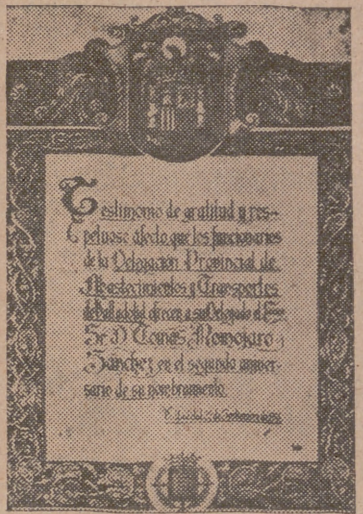 Testimonio de gratitud y res-
petuoso afecto, que los funcionarios
de la Delegación Provincial de
Abastecimientos y Transportes
de Valladolid ofrecen a su Delegado el
Sr. D. Tomás Romojaro
Sánchez en el segundo aniver-
sario de su nombramiento.